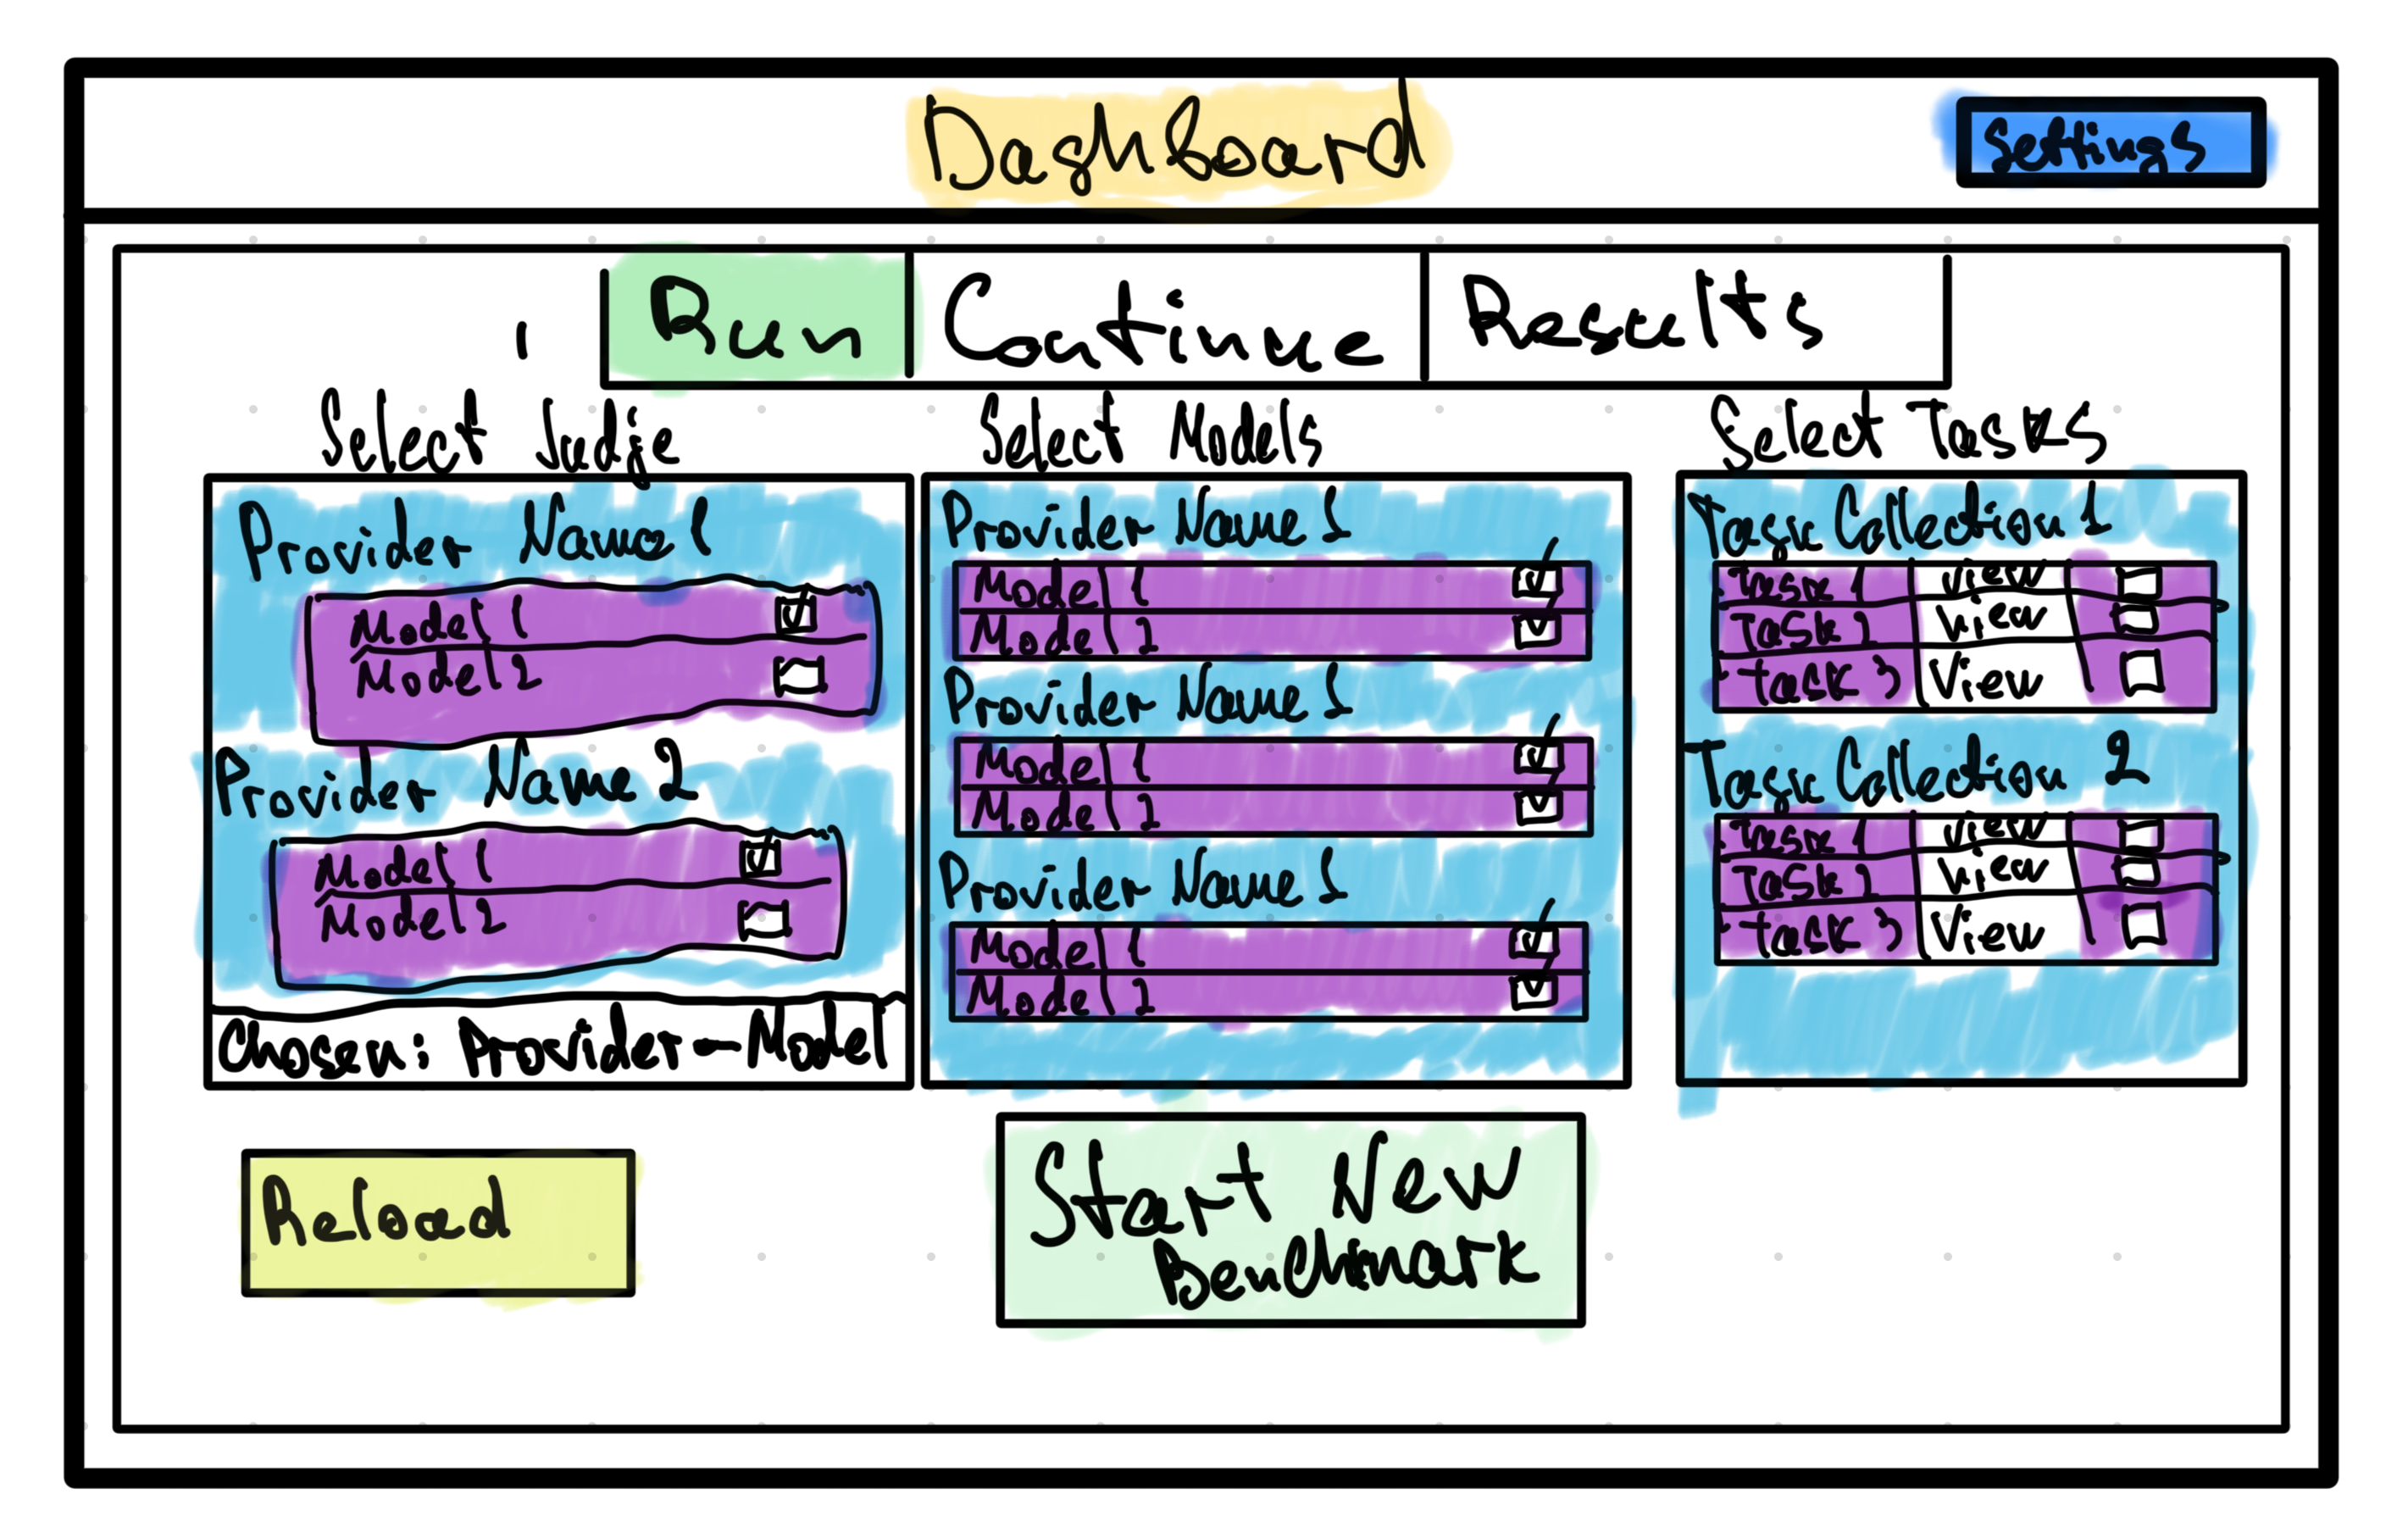 Dashboard
Settings
Run
Continue
Results
Select Judje
Provider Name 1
Model 1
Model 2
Provider Name 2
Model 1
Model 2
Chosen: Provider-Model
Select Models
Provider Name 1
Model 1
Model 2
Provider Name 1
Model 1
Model 2
Provider Name 1
Model 1
Model 2
Select Tasks
Task Collection 1
Task 1 View
Task 2 View
Task 3 View
Task Collection 2
Task 1 View
Task 2 View
Task 3 View
Reload
Start New
Benchmark